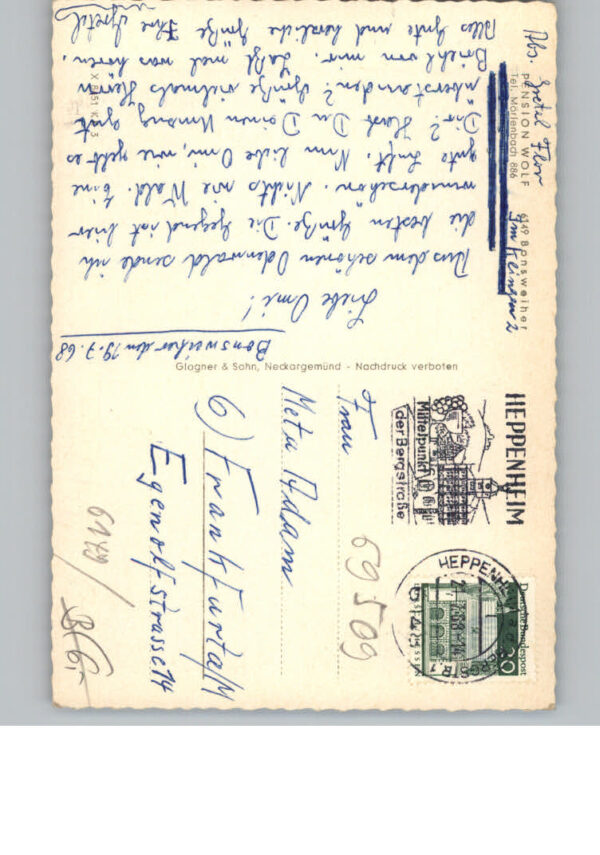 Abs. Gretel Flor
PENSION WOLF
Tel. Mörlenbach 886
6149 Bonsweiher
Im Klingen 2
Bonsweiher den 19.7.68
Liebe Omi!
Aus dem schönen Odenwald sende ich
die besten Grüße. Die Gegend ist hier
wunderschön. Nichts wie Wald. Eine
gute Luft. Nun liebe Omi, wie geht es
Dir? Hast Du Deinen Umzug gut
überstanden? Grüße vielmals Herrn
Briehl von mir. Laßt mal was hören.
Alles Gute und herzliche Grüße Ihre Gretel
Glogner & Sohn, Neckargemünd - Nachdruck verboten
HEPPENHEIM
Mittelpunkt
der Bergstraße
HEPPENHEIM
Deutsche Bundespost
30
Frau
Meta Adam
6) Frankfurt a/M
Egenolfstrasse 14
69509
6149/